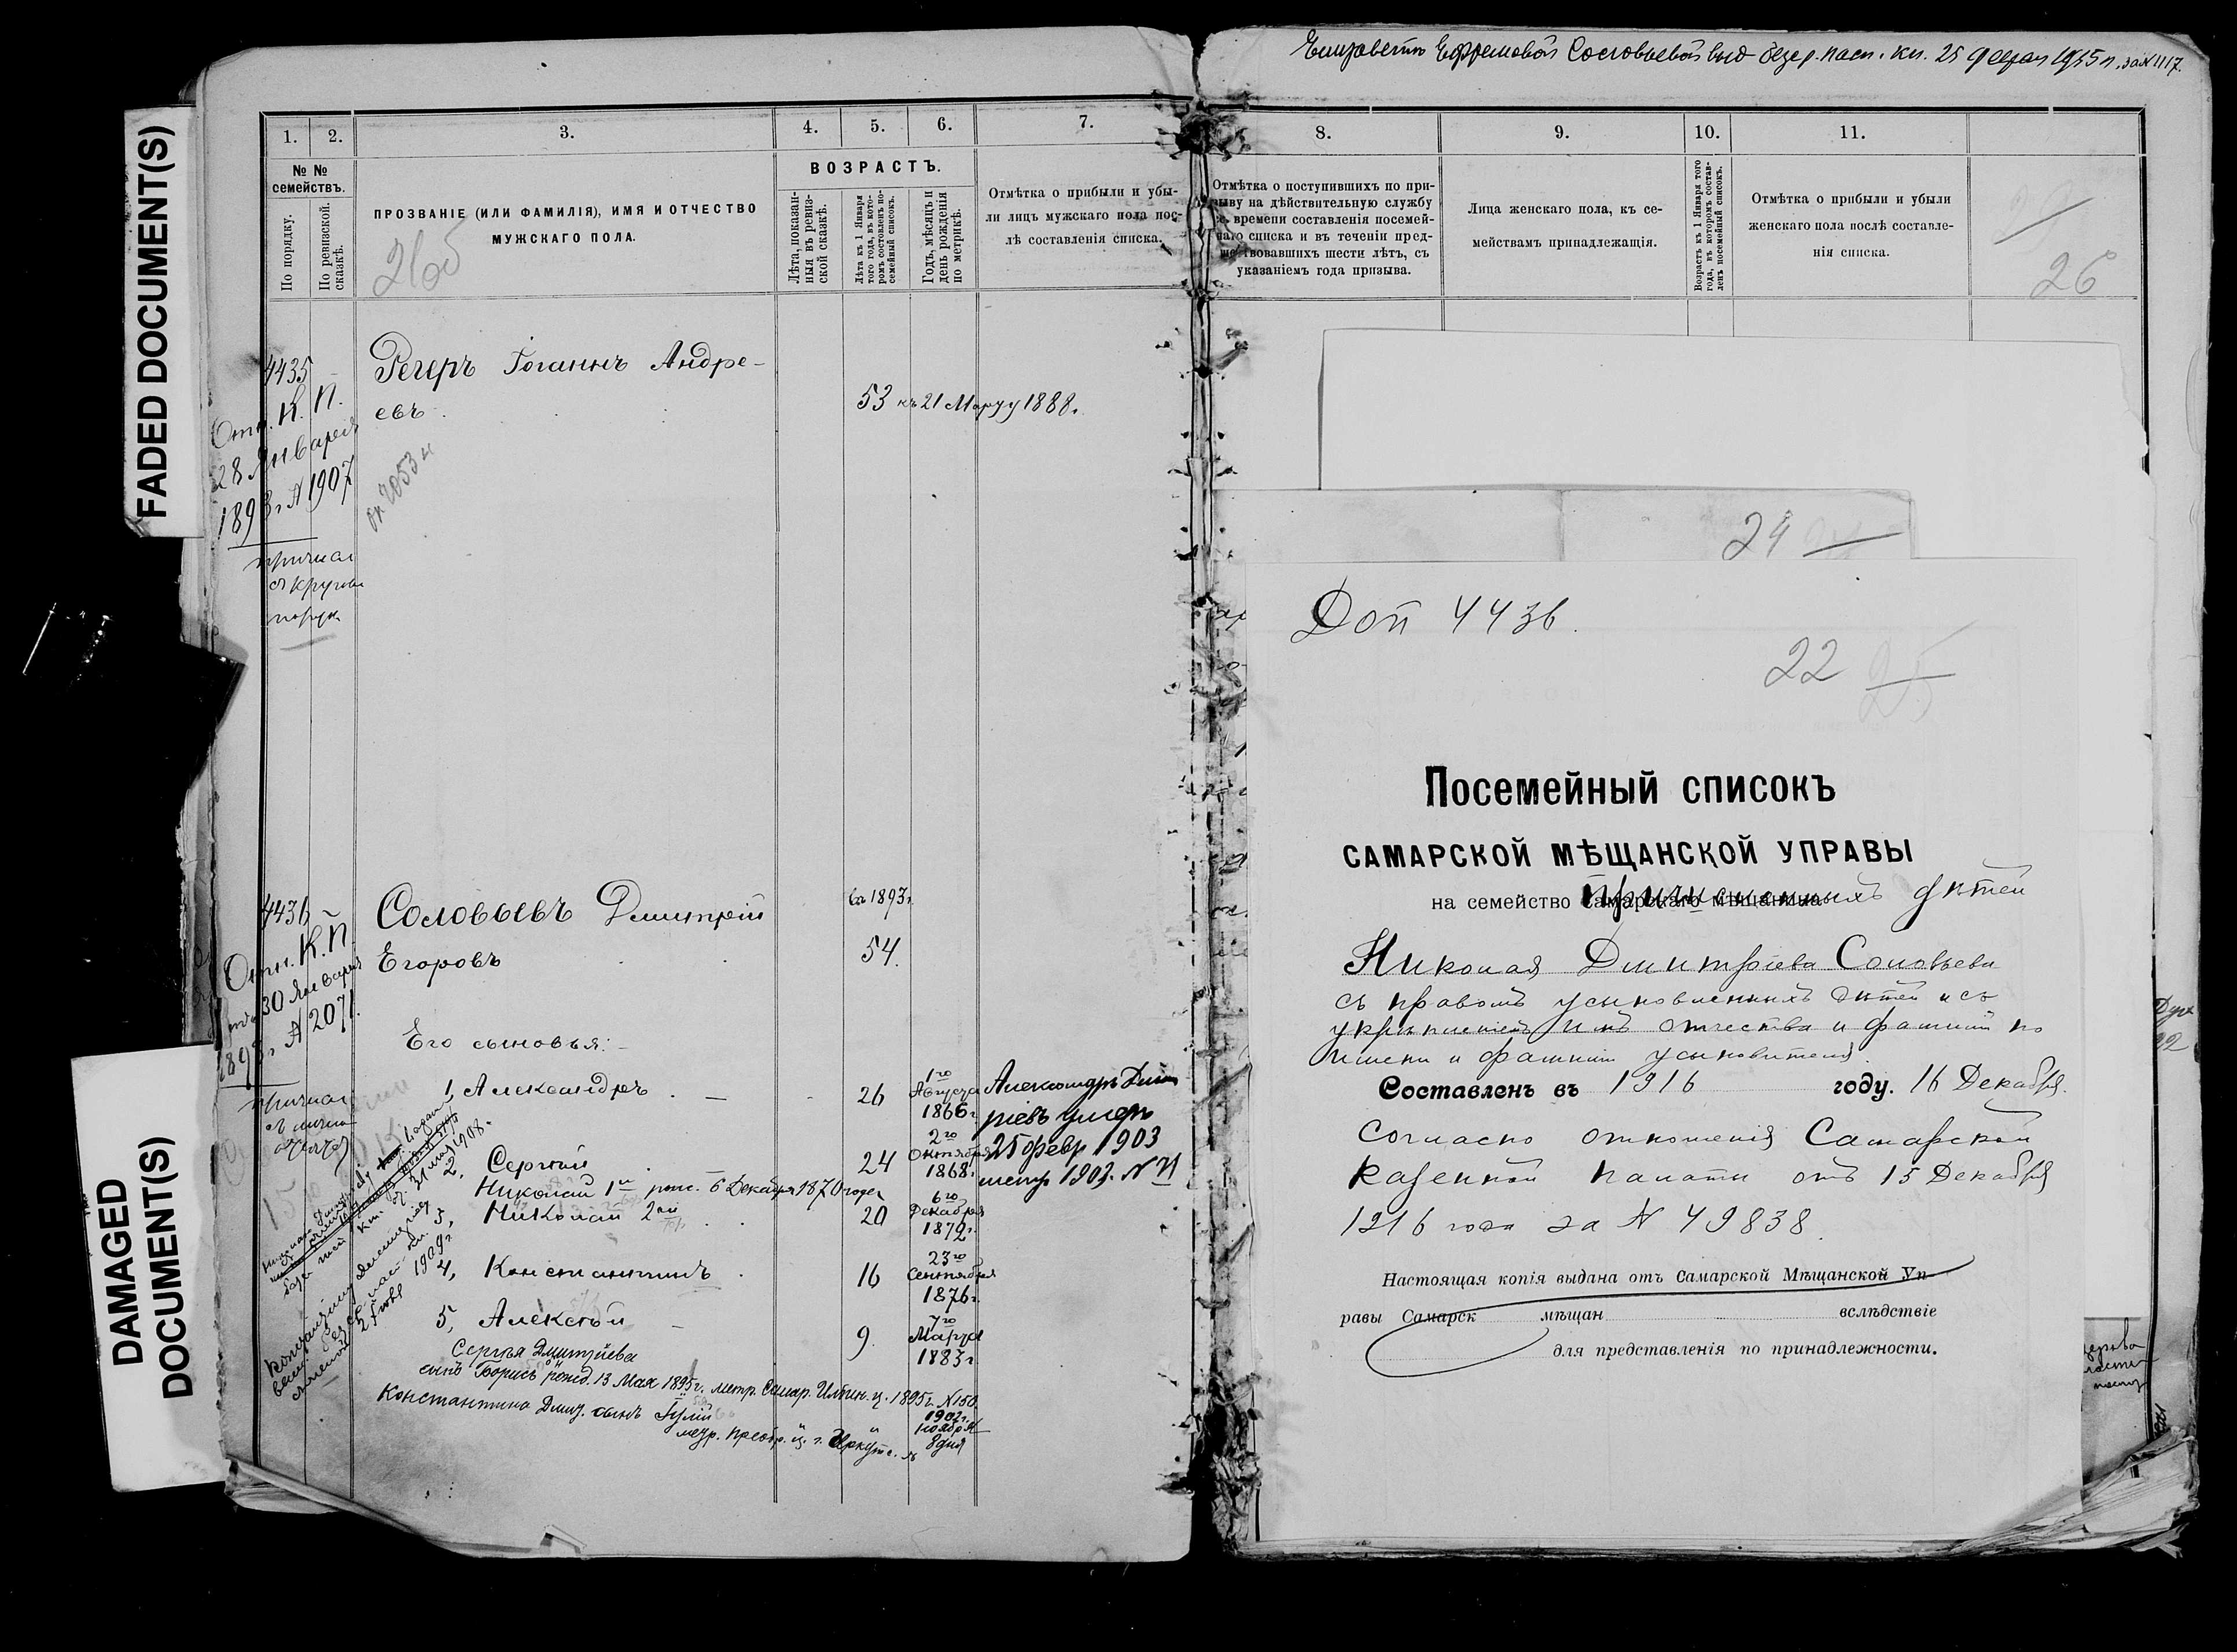 FADED DOCUMENT(S)
DAMAGED
DOCUMENT(S)
1.
2.
3.
4.
5.
6.
7.
№ №
семействъ.
По порядку.
По ревизской
сказкѣ.
ПРОЗВАНІЕ (ИЛИ ФАМИЛІЯ), ИМЯ И ОТЧЕСТВО
МУЖСКАГО ПОЛА.
26об
ВОЗРАСТЪ.
Лѣта, показан-
ныя въ ревиз-
ской сказкѣ.
Лѣта къ 1 Января
того года, въ кото-
ромъ составленъ по-
семейный списокъ.
Годъ, мѣсяцъ и
день рожденія
по метрикѣ.
Отмѣтка о прибыли и убы-
ли лицъ мужскаго пола пос-
лѣ составленія списка.
4435
Регеръ Іоганнъ Андре-
евъ
53 къ 21 Марту 1888г.
Отн. К. П.
28 Января
1893г. № 1907
4436
Соловьевъ Дмитрій
Егоровъ
на 1893г.
54.
Отн. К. П.
30 Января
1893г. № 2071.
Его сыновья:
1, Александръ
26
1го
Августа
1866г.
Александръ Дмит
ріевъ умеръ
25 февр 1903
метр 1903. № 71
2, Сергѣй
24
2го
Октября
1868г.
Николай 1й рожд. 6 Декабря 1870 года
3, Николай 2ой
20
6го
Декабря
1872г.
4, Константинъ
16
23го
Сентября
1876г.
5, Алексѣй
9.
7го
Марта
1883г
Сергѣя Дмитріева
сынъ Борисъ рожд. 13 Мая 1895г. метр. Самар. Ильин. ц. 1895г. №150.
Константина Дмит. сынъ Юлій
1902г.
Ноября
8 дня
метр. Преобр. ц. г. Иркутс.
Елизаветѣ Ефремовой Соловьевой выд безср. пасп. кн. 25 феврал 1915 г. за № 1117.
8.
9.
10.
11.
Отмѣтка о поступившихъ по при-
зыву на дѣйствительную службу
съ времени составленія посемей-
наго списка и въ теченіи пред-
шествовавшихъ шести лѣтъ, съ
указаніемъ года призыва.
Лица женскаго пола, къ се-
мействамъ принадлежащія.
Возрастъ къ 1 Января того
года, въ которомъ состав-
ленъ посемейный списокъ.
Отмѣтка о прибыли и убыли
женскаго пола послѣ составле-
нія списка.
26
24
Доп 4436.
22
Посемейный списокъ
САМАРСКОЙ МѢЩАНСКОЙ УПРАВЫ
на семейство самарскаго мѣщанина дѣтей
Николая Дмитріева Соловьева
съ правомъ усыновленныхъ дѣтей и съ
укрѣпленіемъ имъ отчества и фамиліи по
имени и фамиліи усыновителя.
Составленъ въ 1916 году. 16 Декабря.
Согласно отношенія Самарской
Казенной Палаты отъ 15 Декабря
1916 года за № 49838.
Настоящая копія выдана отъ Самарской Мѣщанской Уп-
равы Самарск мѣщан вслѣдствіе
для представленія по принадлежности.